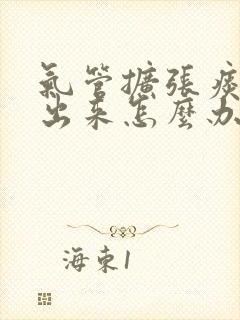 氣管擴張痰
出来怎麼办
海東1